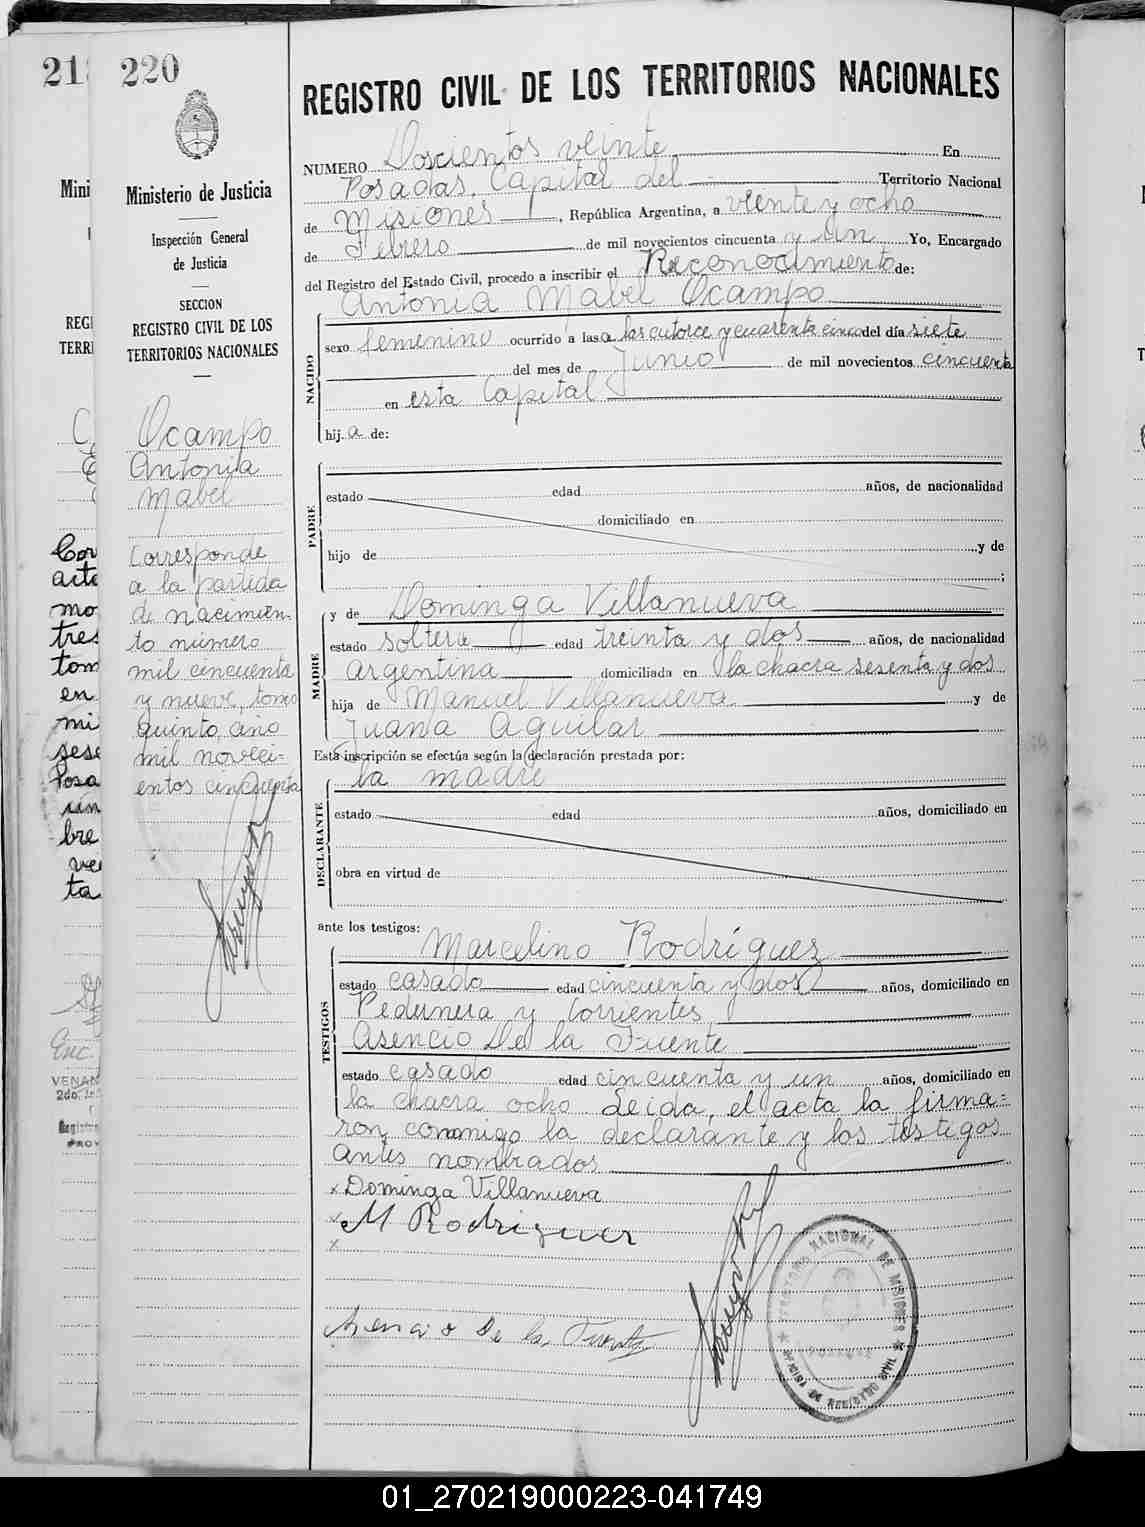 218
220
Ministerio de Justicia
Inspección General
de Justicia
SECCION
REGISTRO CIVIL DE LOS
TERRITORIOS NACIONALES
Ocampo
Antonia
Mabel
Corresponde
a la partida
de nacimien-
to número
mil cincuenta
y nueve, tomo
quinto, año
mil noveci=
entos cincuenta
REGISTRO CIVIL DE LOS TERRITORIOS NACIONALES
NUMERO Doscientos veinte En
Posadas, Capital del Territorio Nacional
de Misiones, República Argentina, a veinte y ocho
de Febrero de mil novecientos cincuenta y un Yo, Encargado
del Registro del Estado Civil, procedo a inscribir el Reconocimiento de:
Antonia Mabel Ocampo
NACIDO
sexo femenino ocurrido a las a las catorce y cuarenta cinco del día siete
del mes de Junio de mil novecientos cincuenta
en esta Capital
hij a de:
PADRE
estado edad años, de nacionalidad
domiciliado en
hijo de y de
;
MADRE
y de Dominga Villanueva
estado soltera edad treinta y dos años, de nacionalidad
argentina domiciliada en la chacra sesenta y dos
hija de Manuel Villanueva y de
Juana Aguilar
Esta inscripción se efectúa según la declaración prestada por:
la madre
DECLARANTE
estado edad años, domiciliado en
obra en virtud de
ante los testigos:
Marcelino Rodríguez
TESTIGOS
estado casado edad cincuenta y dos años, domiciliado en
Pedernera y Corrientes
Asencio De la Fuente
estado casado edad cincuenta y un años, domiciliado en
la chacra ocho Leida, el acta la firma=
ron, conmigo la declarante y los testigos
antes nombrados
x Dominga Villanueva
x M Rodriguez
x
Asencio De la Fuente
TERRITORIO NACIONAL DE MISIONES
OFICINA DE REGISTRO CIVIL
01_270219000223-041749